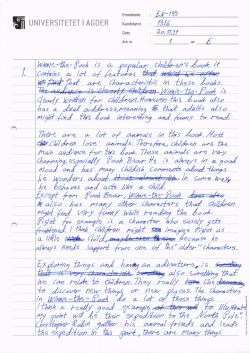 UNIVERSITETET I AGDER
Emnekode: EN-155
Kandidatnr.: 1316
Dato: 20.11.11
Ark nr.: 1 av 6
1. Winnie-the-Pooh is a popular children's book. It
contains a lot of features
that are characteristic in these books.
Winnie-the-Pooh is
clearly written for children. However, this book also
has a deal address, meaning that adults also
might find this book interesting and funny to read.
There are a lot of animals in this book. Most
children love animals. Therefore, children are the
main audience for this book. These animals are very
charming, especially Pooh Bear. He is always in a good
mood and has many childish comments about things
he wonders about. In some ways
he behaves and acts like a child.
Except from Pooh Bear, Winnie-the-Pooh
also has many other characters that children
might find very funny while reading the book.
Piglet for example is a character who easily gets
frightened. I think children might imagine Piglet as
a little child because he
always needs support from one of the "older" characters.
Exploring things and having an adventure, is
also something that
we can relate to children. They really like
to discover new things or new places. The characters
in Winnie-the-Pooh do a lot of these things.
I think a really good example to illustrate
my point will be their "expedition to the North Pole".
Christopher Robin gather his animal friends and leads
the expedition. In this part, there are many things